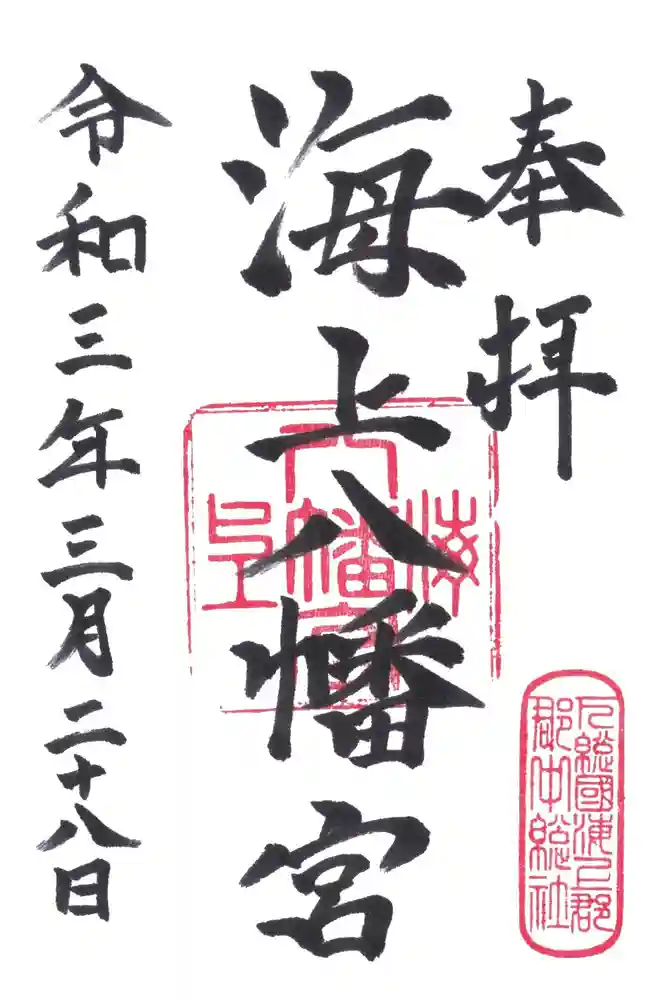 奉拝
海上八幡宮
令和三年三月二十八日
海上
八幡宮
下総國海上郡
郡中総社